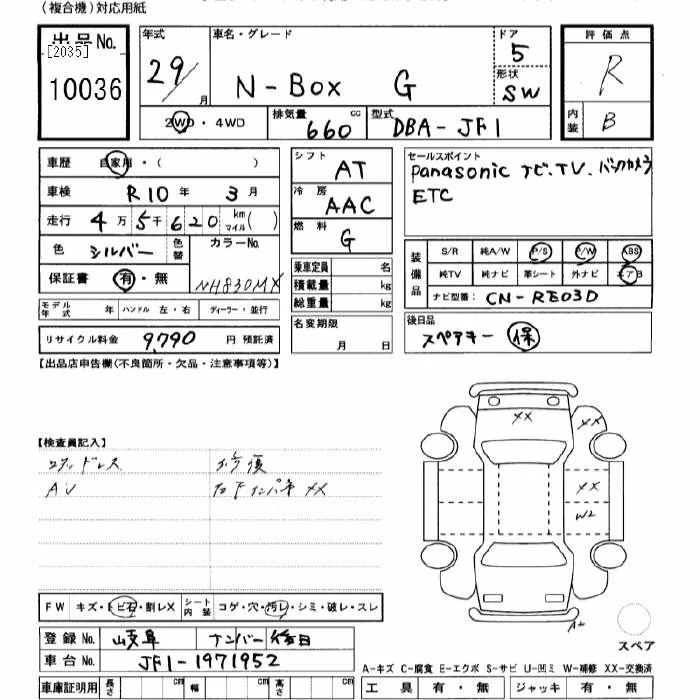 (複合機)対応用紙
出品No. [2035] 10036
年式 29 月
車名・グレード N-BOX G
ドア 5
形状 SW
評価点 R
内装 B
2WD・4WD
排気量 660 cc
型式 DBA-JF1
車歴 自家用・( )
車検 R10年 3月
走行 4万5千620 km マイル( )
色 シルバー 色替
カラーNo. NH830MX
保証書 有・無
モデル年式 年 ハンドル 左・右 ディーラー・並行
リサイクル料金 9,790 円 預託済
シフト AT
冷房 AAC
燃料 G
乗車定員 名
積載量 kg
総重量 kg
名変期限 月 日
セールスポイント
Panasonic ナビ、TV、バックカメラ
ETC
装備品
S/R 純A/W P/S P/W ABS
純TV 純ナビ 革シート 外ナビ エアB
ナビ型番: CN-RE03D
後日品
スペアキー 保
【出品店申告欄(不良箇所・欠品・注意事項等)】
【検査員記入】
AU
右下インパネ XX
XX
XX
XX
W2
FW キズ・トビ石・割レX シート内装 コゲ・穴・汚レ・シミ・破レ・スレ
登録No. 岐阜 ナンバー後日
車台No. JF1-1971952
車庫証明用 長さ cm 幅 cm 高さ cm
スペア
A-キズ C-腐食 E-エクボ S-サビ U-凹ミ W-補修 XX-交換済
工具 有・無 ジャッキ 有・無